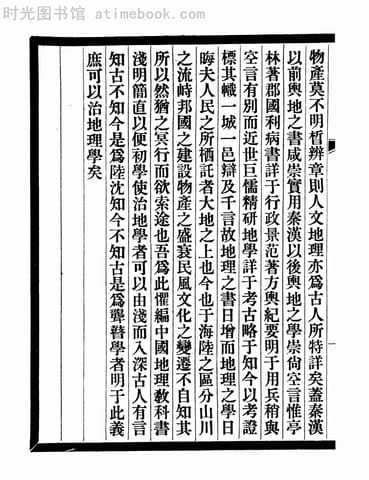 时光图书馆 atimebook.com
物產莫不明晳辨章則人文地理亦爲古人所特詳矣蓋秦漢
以前輿地之書咸崇實用秦漢以後輿地之學崇尙空言惟亭
林著郡國利病書詳于行政景范著方輿紀要明于用兵稍與
空言有別而近世巨儒精研地學詳于考古略于知今以考證
標其幟一城一邑辯及千言故地理之書日增而地理之學日
晦夫人民之所栖託者大地之上也今也于海陸之區分山川
之流峙邦國之建設物產之盛衰民風文化之變遷不自知其
所以然猶之冥行而欲索途也吾爲此懼編中國地理敎科書
淺明簡直以便初學使治地學者可以由淺而入深古人有言
知古不知今是爲陸沈知今不知古是爲聾瞽學者明于此義
庶可以治地理學矣
一
时光图书馆 atimebook.com